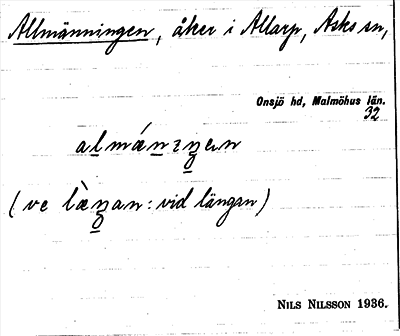 Allmänningen, åker i Allarp, Asks sn,
Onsjö hd, Malmöhus län.
32
almánıŋen
(ve lὰŋan: vid längan)
NILS NILSSON 1936.